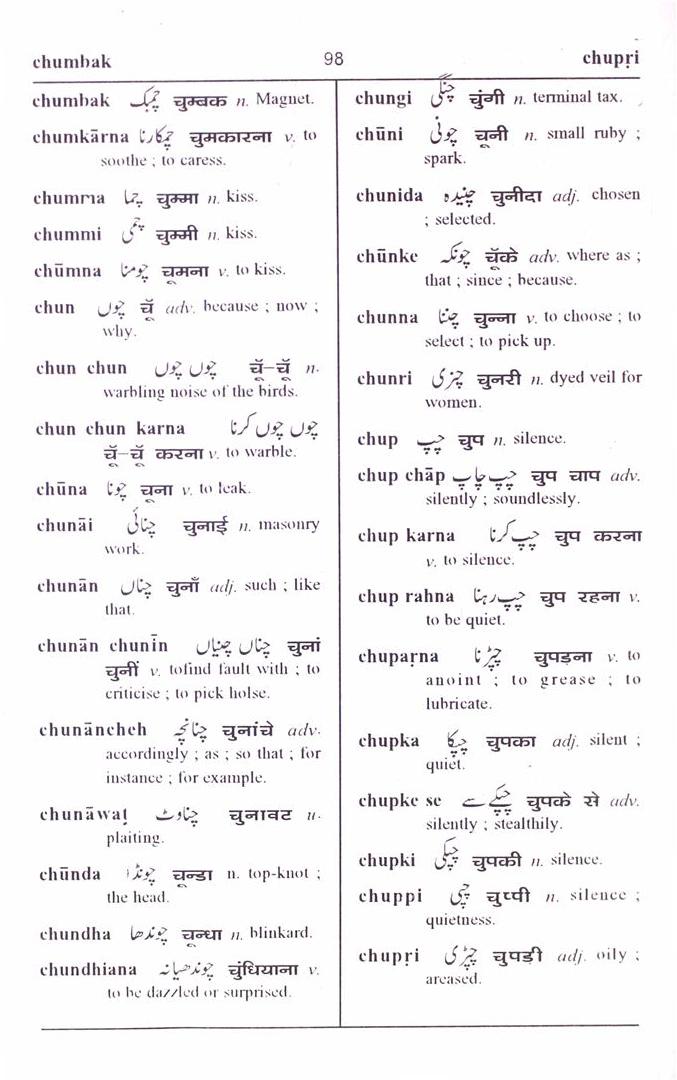 chumbak 98 chupṛi
chumbak چمبک चुम्बक n. Magnet.
chumkārna چمکارنا चुमकारना v. to
soothe ; to caress.
chumma چما चुम्मा n. kiss.
chummi چمی चुम्मी n. kiss.
chūmna چومنا चूमना v. to kiss.
chun چوں चूँ adv. because ; now ;
why.
chun chun چوں چوں चूँ–चूँ n.
warbling noise of the birds.
chun chun karna چوں چوں کرنا
चूँ–चूँ करना v. to warble.
chūna چونا चूना v. to leak.
chunāi چنائی चुनाई n. masonry
work.
chunān چناں चुनाँ adj. such ; like
that.
chunān chunīn چناں چنیاں चुनां
चुनीं v. tofind fault with ; to
criticise ; to pick holse.
chunāncheh چنانچہ चुनांचे adv.
accordingly ; as ; so that ; for
instance ; for example.
chunāwaṭ چناوٹ चुनावट n.
plaiting.
chūnda چونڈا चून्डा n. top-knot ;
the head.
chundha چوندھا चून्धा n. blinkard.
chundhiana چوندھیانہ चुंधियाना v.
to be dazzled or surprised.
chungi چنگی चुंगी n. terminal tax.
chūni چونی चूनी n. small ruby ;
spark.
chunida چنیدہ चुनीदा adj. chosen
; selected.
chūnke چونکہ चूँके adv. where as ;
that ; since ; because.
chunna چننا चुन्ना v. to choose ; to
select ; to pick up.
chunri چنری चुनरी n. dyed veil for
women.
chup چپ चुप n. silence.
chup chāp چپ چاپ चुप चाप adv.
silently ; soundlessly.
chup karna چپ کرنا चुप करना
v. to silence.
chup rahna چپ رہنا चुप रहना v.
to be quiet.
chupaṛna چپڑنا चुपड़ना v. to
anoint ; to grease ; to
lubricate.
chupka چپکا चुपका adj. silent ;
quiet.
chupke se چپکے سے चुपके से adv.
silently ; stealthily.
chupki چپکی चुपकी n. silence.
chuppi چپی चुप्पी n. silence ;
quietness.
chupṛi چپڑی चुपड़ी adj. oily ;
areased.